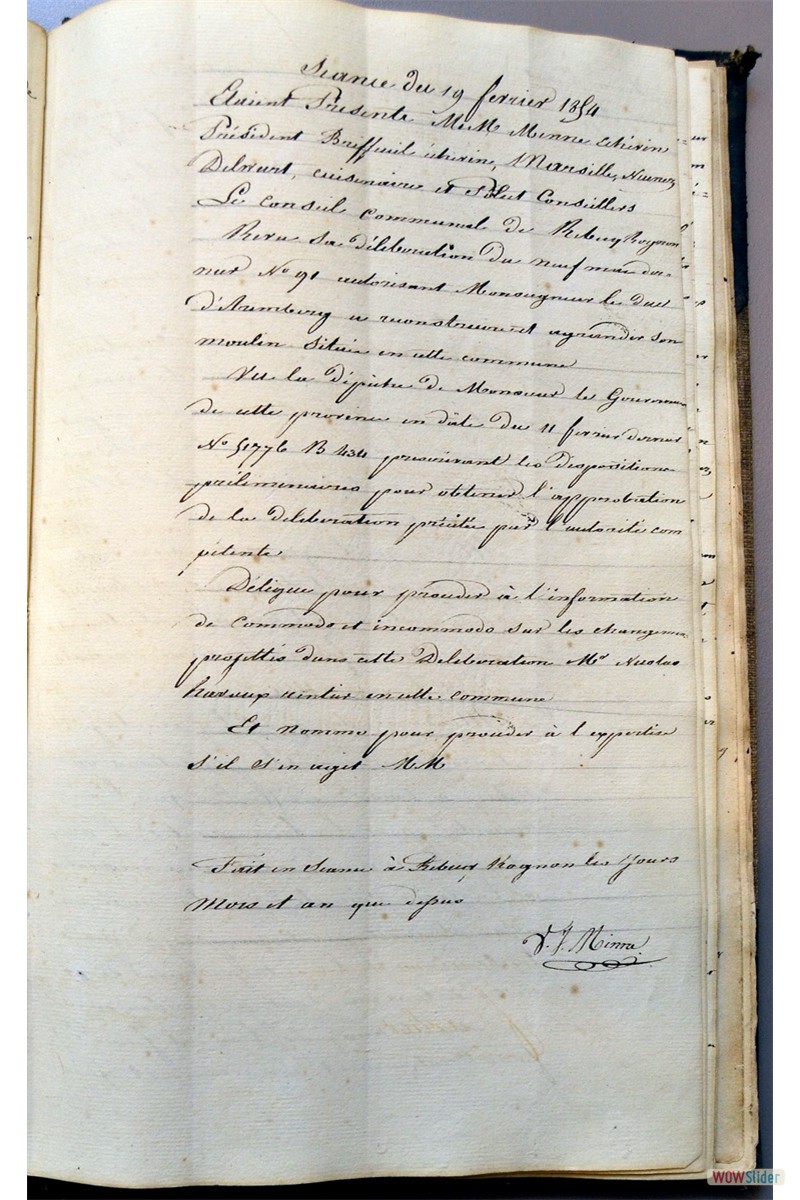 Seance du 19 fevrier 1854
Etaient Présents MM Minne échévin
Président Briffeuil échevin, Marsille,
Delwart, cuisenaire et Pilet Conseillers
Le Conseil Communal de Rebecq Rognon
Revu sa déliberation du neuf mai der-
nier No 91 autorisant Monseigneur le duc
d'Aremberg a reconstruire et agrandir son
moulin située en cette commune
Vu la dépêche de Monsieur le Gouverneur
de cette province en date du 11 fevrier dernier
No 51776 B 434 prescrivant les dispositions
préliminaires pour obtenir l'approbation
de la deliberation précitée par l'autorité com
pétente
Délègue pour proceder à l'information
de Commodo et incommodo sur les changemens
projettés dans cette Deliberation Mr Nicolas
rentier en cette commune
Et nomme pour procéder à l'expertise
s'il s'en exiget MM
Fait en Seance à Rebecq Rognon les Jours
Mois et an que dessus
V. J. Minne
WOWSlider